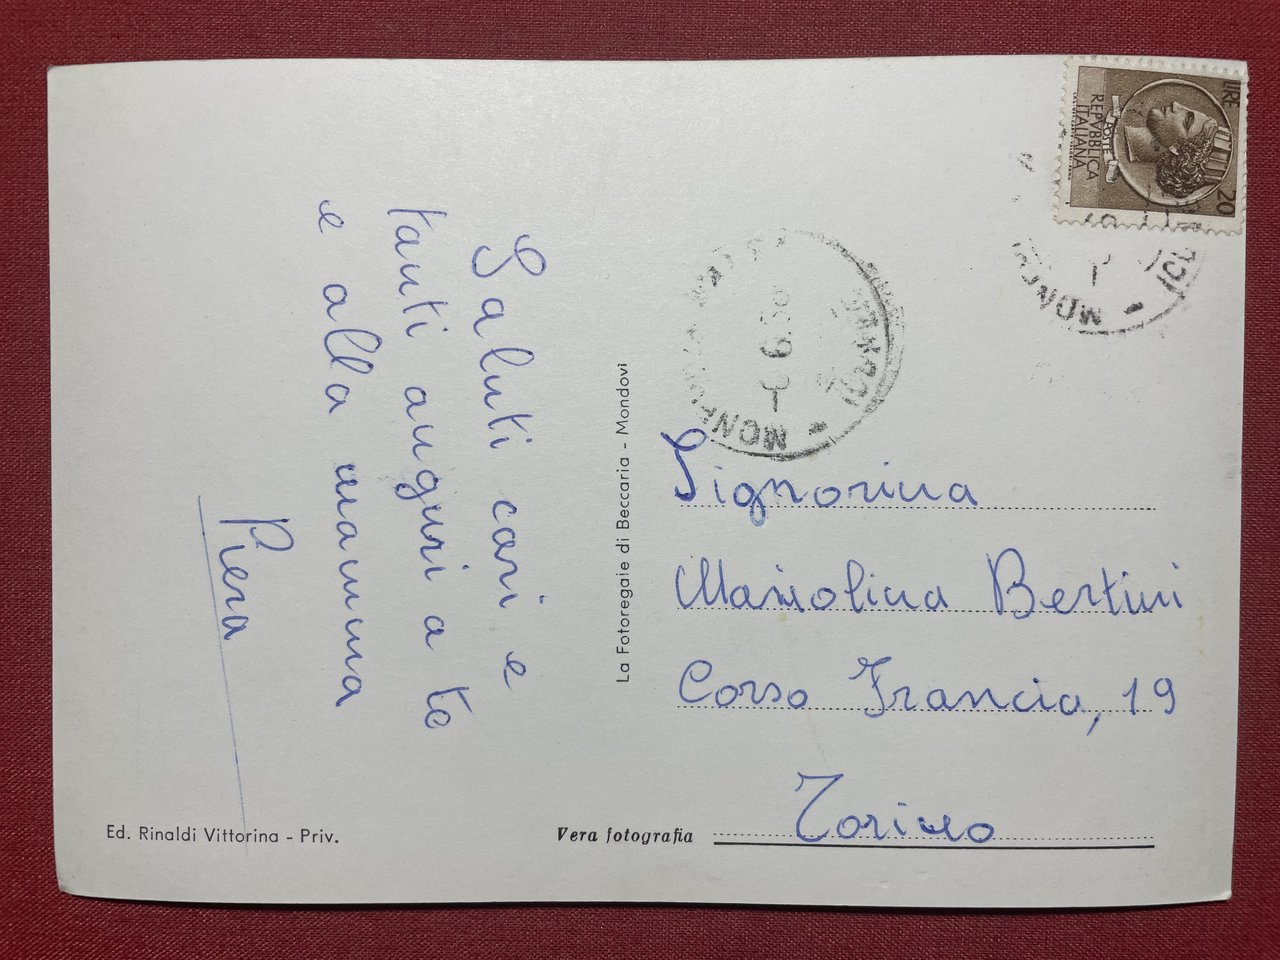 Saluti cari e
tanti auguri a te
e alla mamma
Piera
Ed. Rinaldi Vittorina - Priv.
La Fotoregale di Beccaria - Mondovi
Vera fotografia
LIRE 20
POSTE
REPVBBLICA
ITALIANA
Signorina
Mariolina Bertini
Corso Francia, 19
Torino